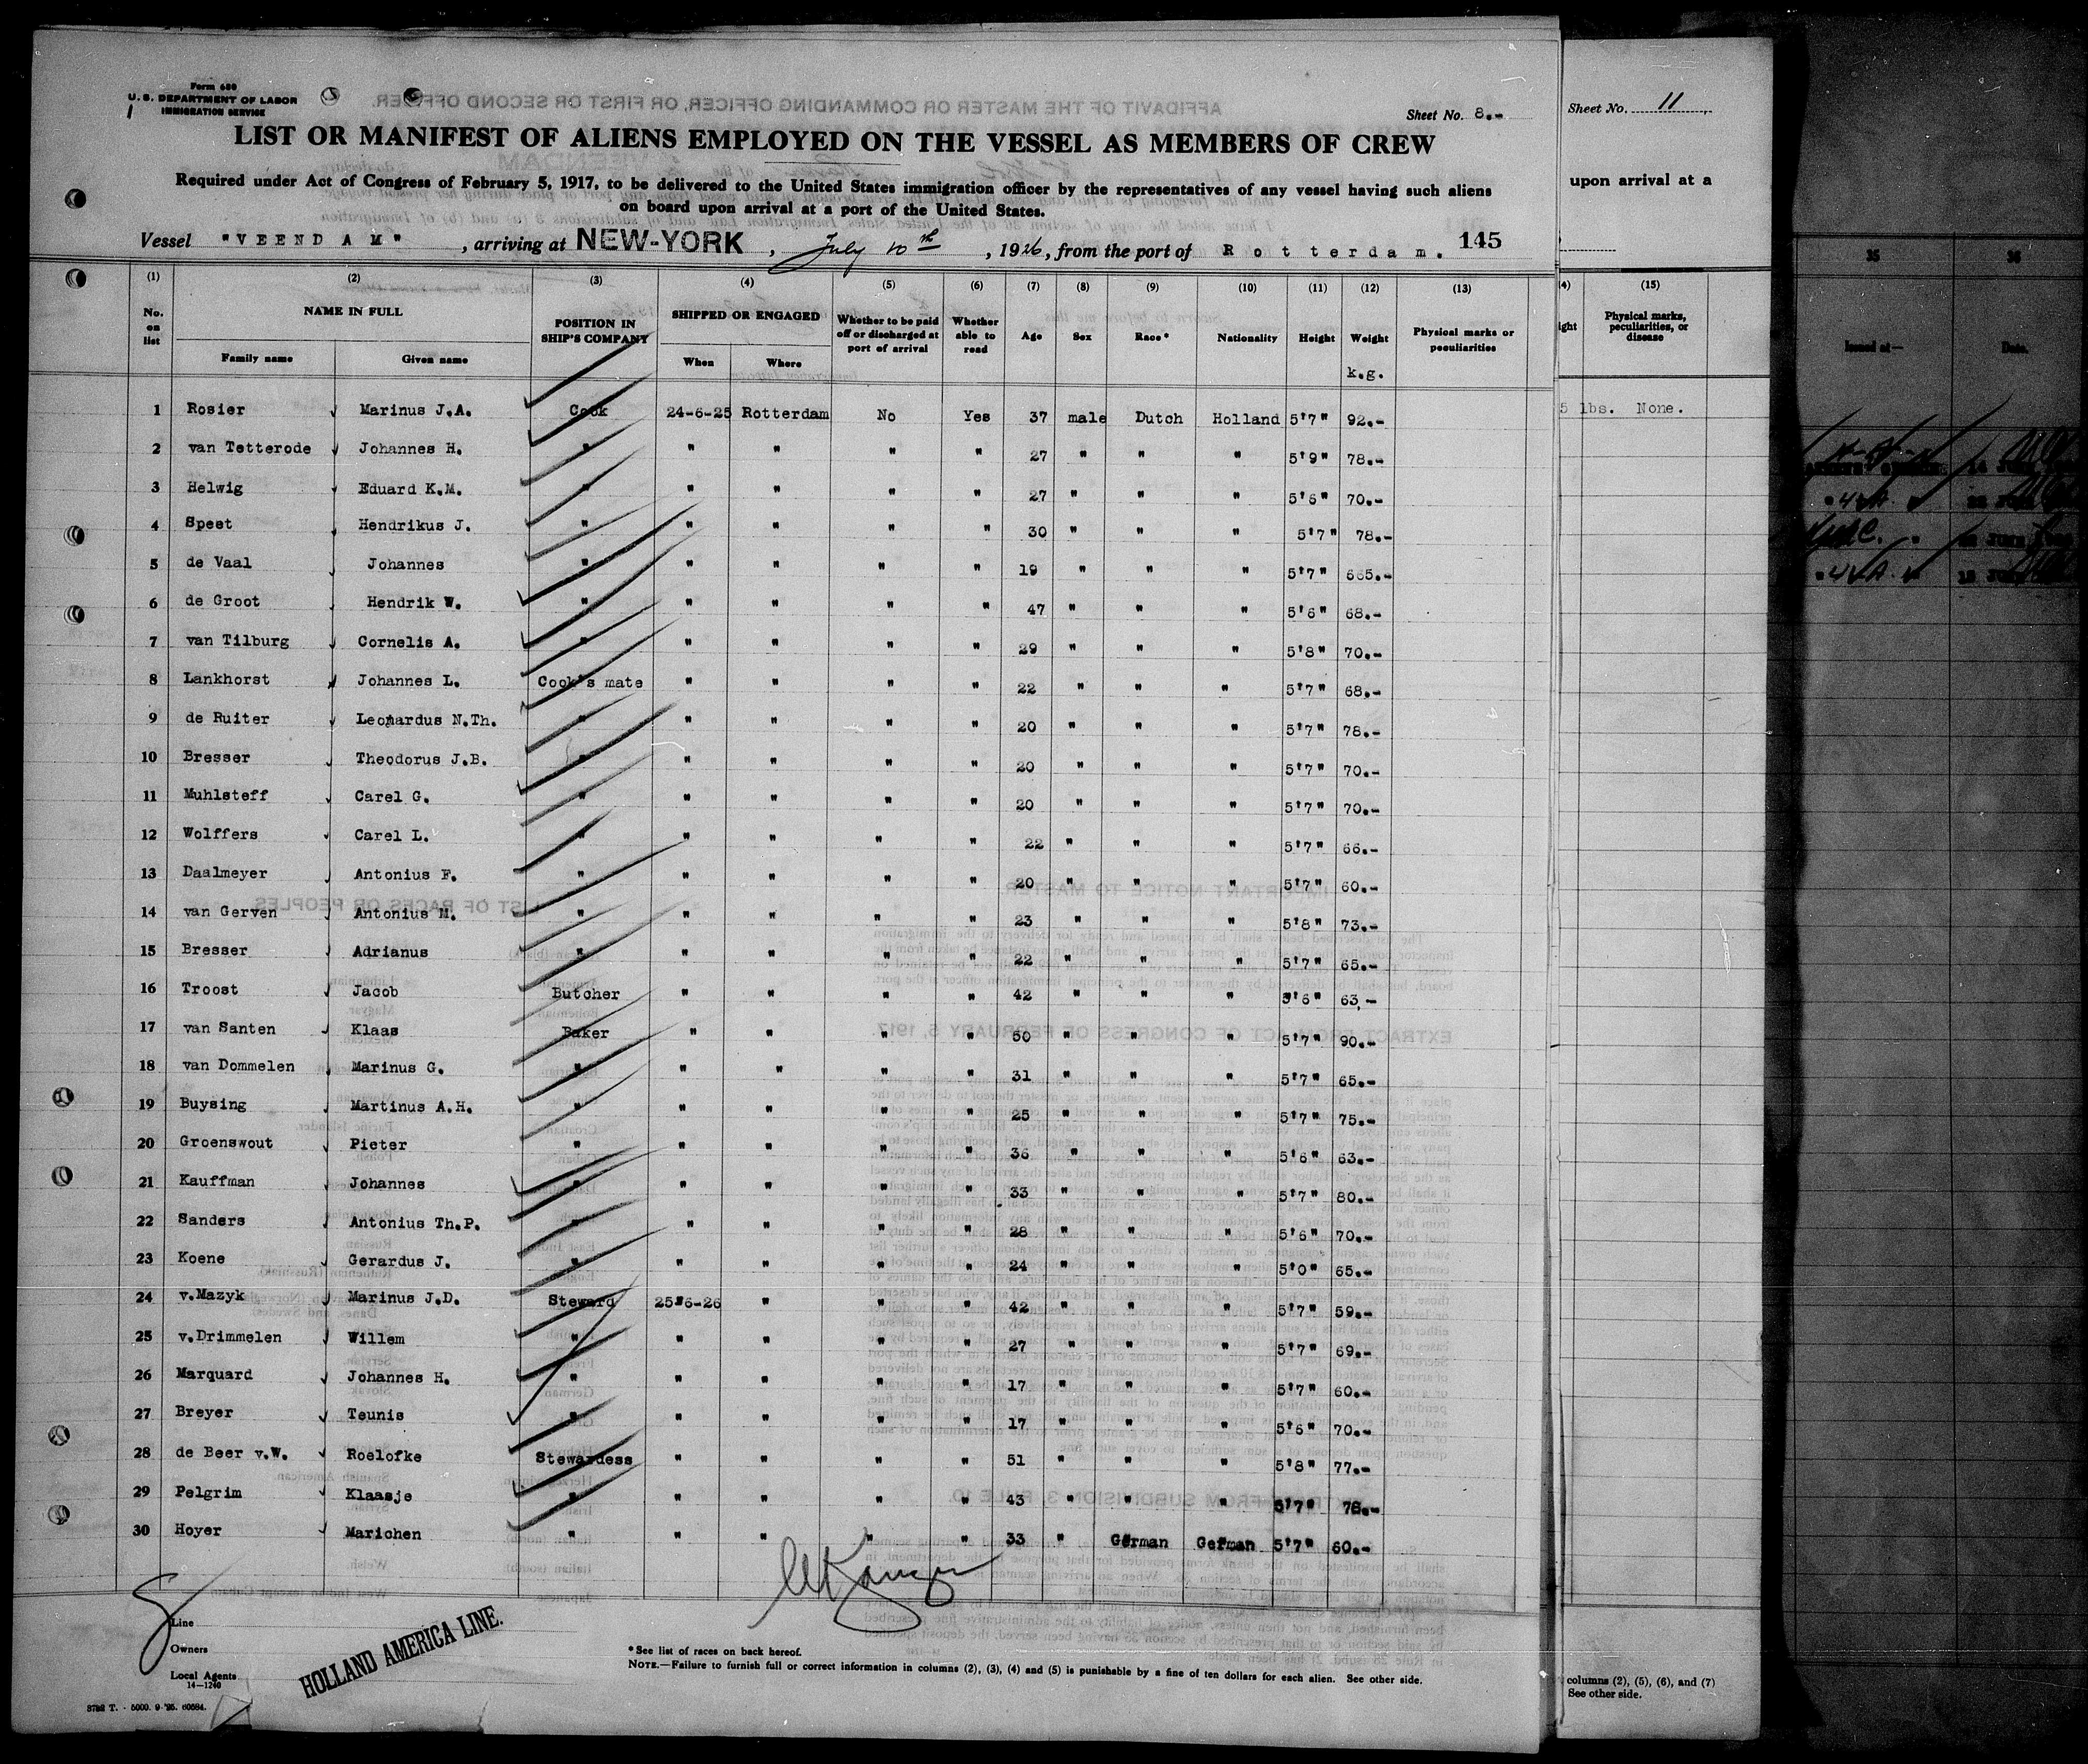 Form 680
U. S. DEPARTMENT OF LABOR
IMMIGRATION SERVICE
Sheet No. 8.-
LIST OR MANIFEST OF ALIENS EMPLOYED ON THE VESSEL AS MEMBERS OF CREW
Required under Act of Congress of February 5, 1917, to be delivered to the United States immigration officer by the representatives of any vessel having such aliens
on board upon arrival at a port of the United States.
Vessel "VEENDAM", arriving at NEW-YORK, July 10th, 1926, from the port of Rotterdam. 145
(1) (2) (3) (4) (5) (6) (7) (8) (9) (10) (11) (12) (13)
No. on list NAME IN FULL Family name Given name POSITION IN SHIP'S COMPANY SHIPPED OR ENGAGED When Where Whether to be paid off or discharged at port of arrival Whether able to read Age Sex Race* Nationality Height Weight k.g. Physical marks or peculiarities
1 Rosier Marinus J.A. Cook 24-6-25 Rotterdam No Yes 37 male Dutch Holland 5'7" 92.-
2 van Tetterode Johannes H. " " " " " 27 " " " 5'9" 78.-
3 Helwig Eduard K.M. " " " " " 27 " " " 5'6" 70.-
4 Speet Hendrikus J. " " " " " 30 " " " 5'7" 78.-
5 de Vaal Johannes " " " " " 19 " " " 5'7" 665.-
6 de Groot Hendrik W. " " " " " 47 " " " 5'6" 68.-
7 van Tilburg Cornelis A. " " " " " 29 " " " 5'8" 70.-
8 Lankhorst Johannes L. Cook's mate " " " " 22 " " " 5'7" 68.-
9 de Ruiter Leonardus N.Th. " " " " " 20 " " " 5'7" 78.-
10 Bresser Theodorus J.B. " " " " " 20 " " " 5'7" 70.-
11 Muhlsteff Carel G. " " " " " 20 " " " 5'7" 70.-
12 Wolffers Carel L. " " " " " 22 " " " 5'7" 66.-
13 Daalmeyer Antonius F. " " " " " 20 " " " 5'7" 60.-
14 van Gerven Antonius M. " " " " " 23 " " " 5'8" 73.-
15 Bresser Adrianus " " " " " 22 " " " 5'7" 65.-
16 Troost Jacob Butcher " " " " 42 " " " 5'6" 63,-
17 van Santen Klaas Baker " " " " 50 " " " 5'7" 90.-
18 van Dommelen Marinus G. " " " " " 31 " " " 5'7" 65.-
19 Buysing Martinus A.H. " " " " " 25 " " " 5'7" 75.-
20 Groenswout Pieter " " " " " 36 " " " 5'6" 63.-
21 Kauffman Johannes " " " " " 33 " " " 5'7" 80.-
22 Sanders Antonius Th.P. " " " " " 28 " " " 5'6" 70.-
23 Koene Gerardus J. " " " " " 24 " " " 5'0" 65.-
24 v.Mazyk Marinus J.D. Steward 25-6-26 " " " 42 " " " 5'7" 59.-
25 v.Drimmelen Willem " " " " " 27 " " " 5'7" 69.-
26 Marquard Johannes H. " " " " " 17 " " " 5'7" 60.-
27 Breyer Teunis " " " " " 17 " " " 5'6" 70.-
28 de Beer v.W. Roelofke Stewardess " " " " 51 " " " 5'8" 77.-
29 Pelgrim Klaasje " " " " " 43 " " " 5'7" 78.-
30 Hoyer Marichen " " " " " 33 " German German 5'7" 60.-
Line
Owners
Local Agents
14—1240
HOLLAND AMERICA LINE.
*See list of races on back hereof.
NOTE.—Failure to furnish full or correct information in columns (2), (3), (4) and (5) is punishable by a fine of ten dollars for each alien. See other side.
3782 T. - 5000. 9-'25. 60584.
Sheet No. 11
upon arrival at a
(15)
Physical marks, peculiarities, or disease
5 lbs. None.
columns (2), (5), (6), and (7)
See other side.
35 36
Issued at— Date.